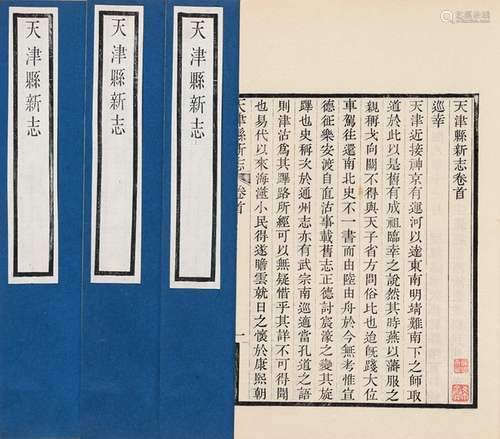 天津縣新志
天津縣新志
天津縣新志
天津縣新志卷首
巡幸
天津近接神京有運河以達東南明靖難南下之師取
道於此以是舊有成祖臨幸之說然其時燕以藩服之
親稱戈向闕不得與天子省方問俗比也迨旣踐大位
車駕往還南北史不一書而由陸由舟於今無考惟宣
德征樂安渡自直沽事載舊志正德討宸濠之變其旋
蹕也史稱次於通州志亦有武宗南巡適當孔道之語
則津沽爲其蹕路所經可以無疑惜乎其詳不可得聞
也易代以來海澨小民得遂瞻雲就日之懷於康熙朝
天津縣新志 卷首 一